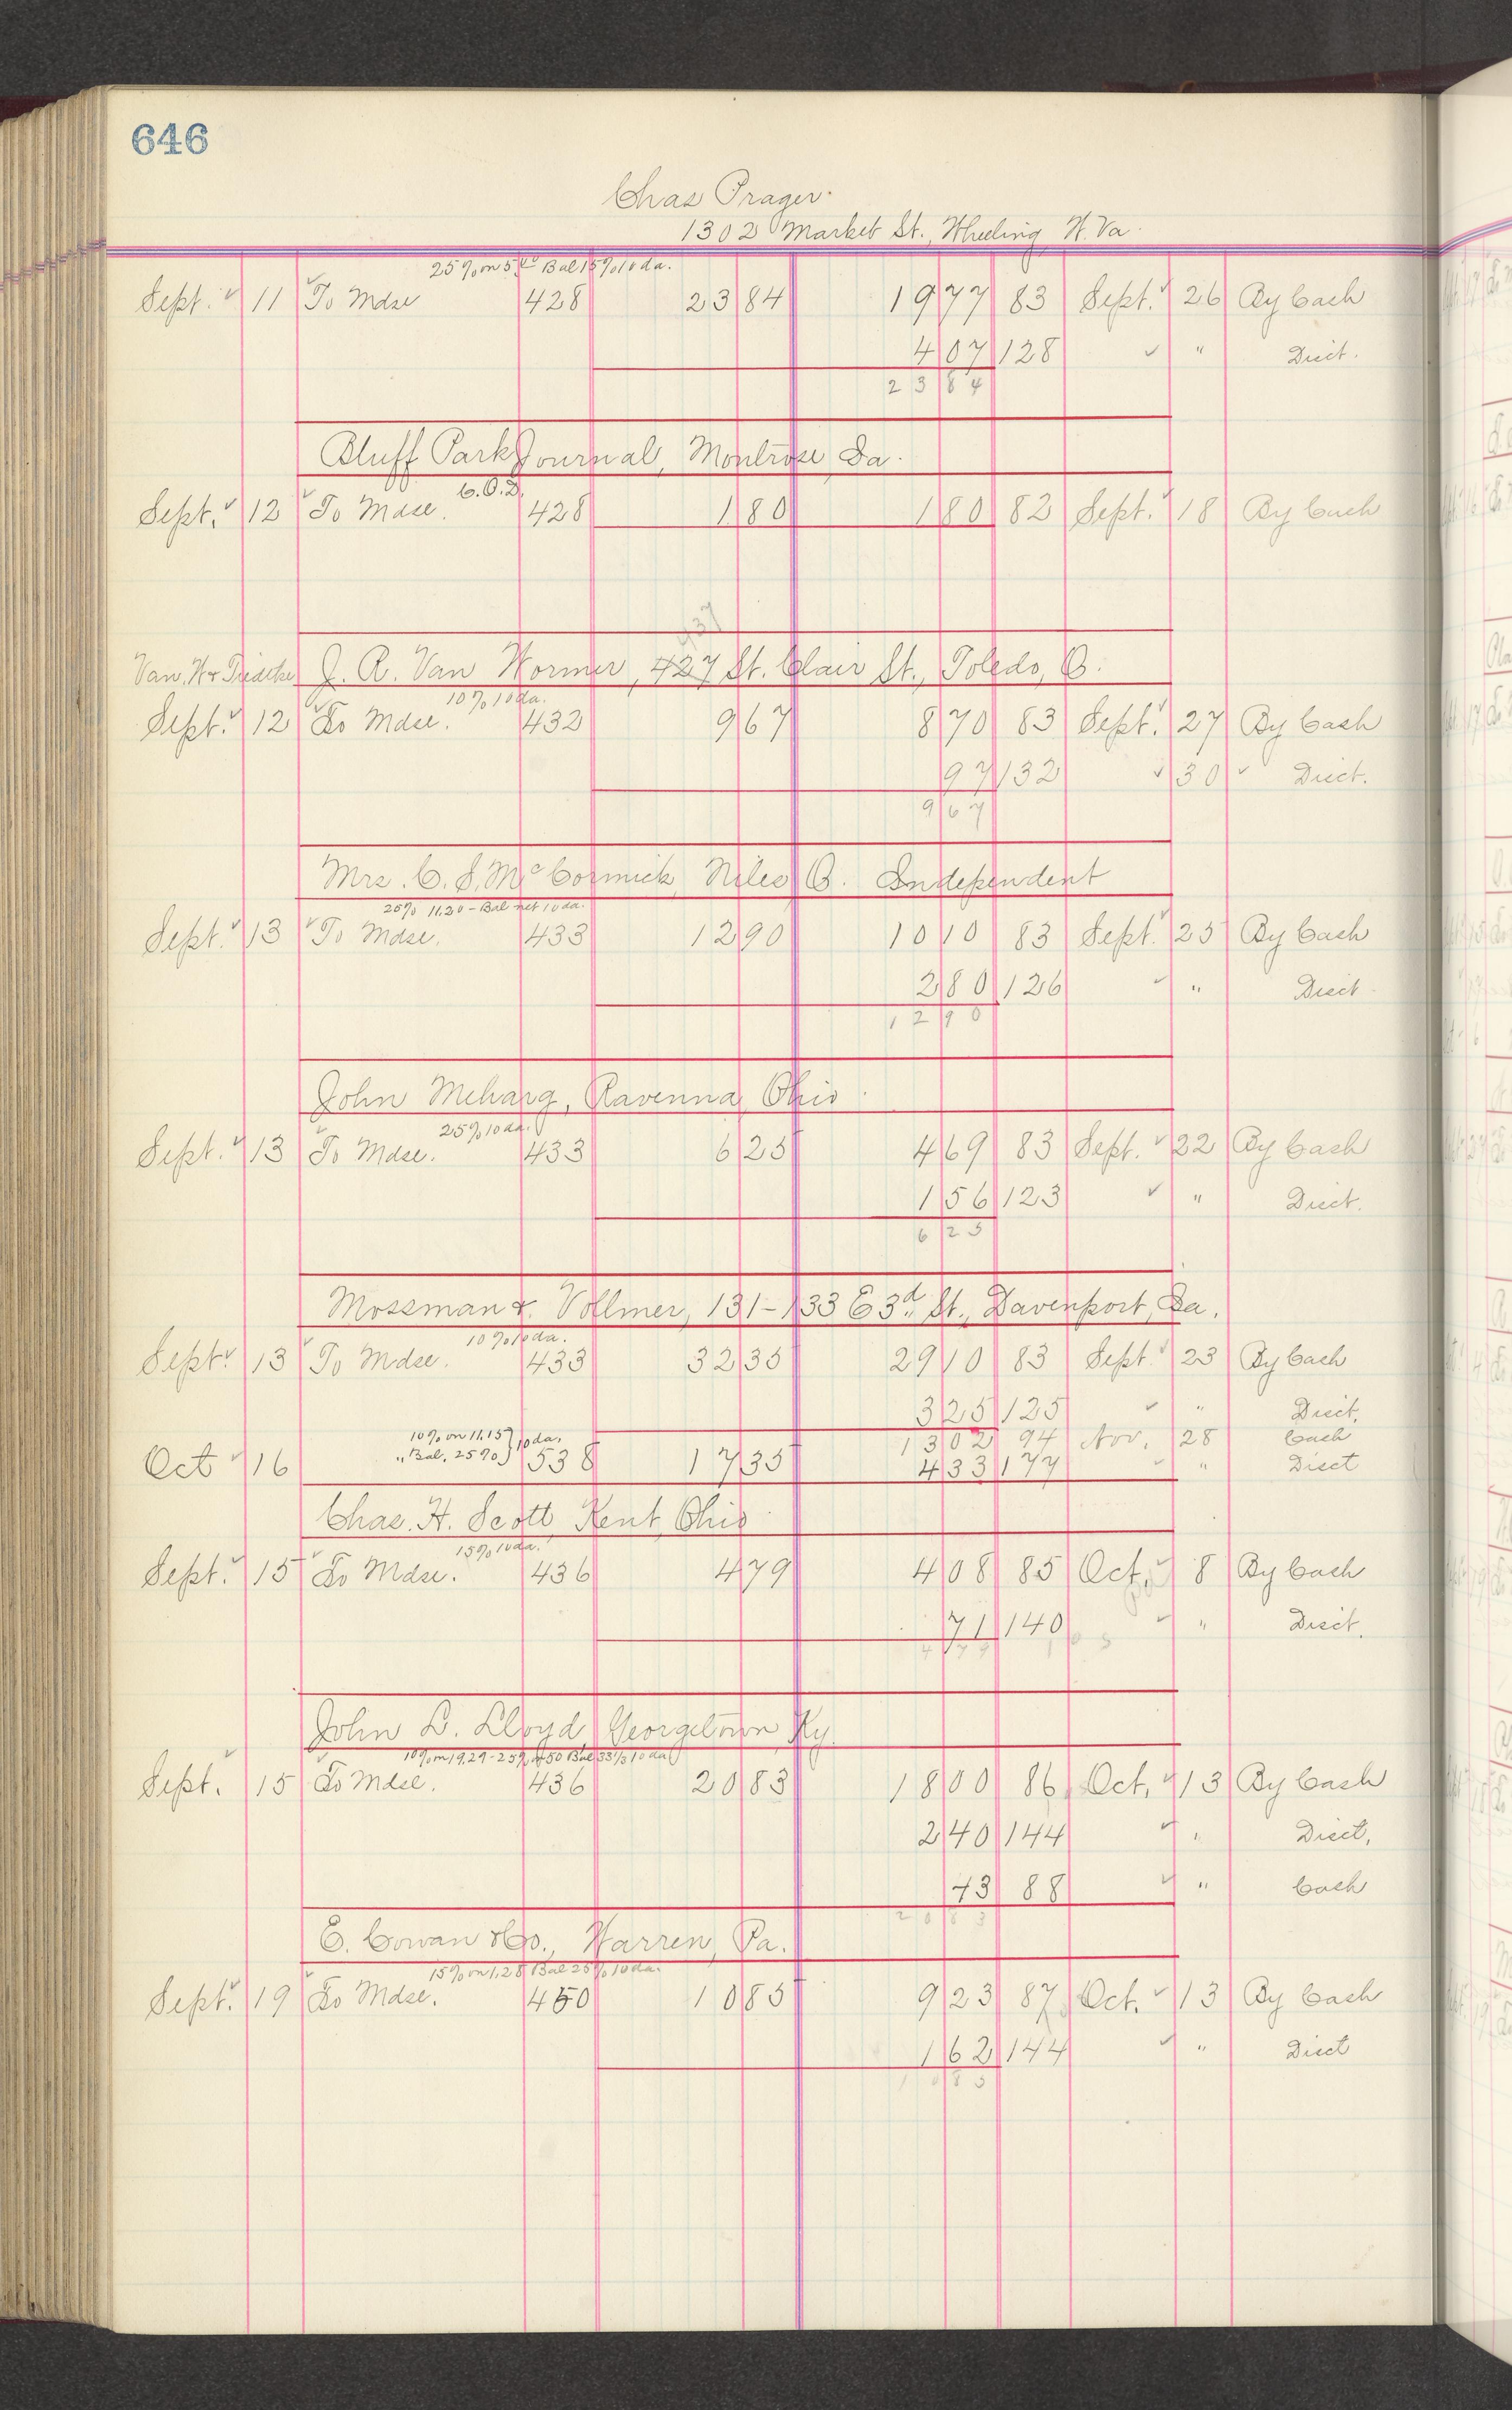 646
Chas Prager.
1302 Market St., Wheeling W. Va.
25% on 5.00 Bal 15% 10 da.
Sept. 11 To Mdse 428 23 84 19 77 83 Sept. 26 By Cash
4 07 128 " Disct.
23 84
Bluff Park Journal, Montrose, Ia.
C.O.D.
Sept. 12 To Mdse. 428 1 80 1 80 82 Sept. 18 By Cash
437
Van. W & J. R. Van Wormer, 427 St. Clair St., Toledo, O.
10% 10 da.
Sept. 12 To Mdse. 432 9 67 8 70 83 Sept. 27 By Cash
97 132 30 Disct.
9 67
Mrs. C. S. McCormick, Niles O. Independent
25% 11.20 - Bal net 10 da.
Sept. 13 To Mdse. 433 12 90 10 10 83 Sept. 25 By Cash
2 80 126 " Disct
12 90
John Meharg, Ravenna, Ohio
25% 10 da.
Sept. 13 To Mdse. 433 6 25 4 69 83 Sept. 22 By Cash
1 56 123 " Disct.
6 25
Mossman & Vollmer, 131-133 E 3d. St., Davenport, Ia.
10% 10 da.
Sept. 13 To Mdse. 433 32 35 29 10 83 Sept. 23 By Cash
3 25 125 " Disct.
10% on 11.15 } 10 da. 13 02 94 Nov. 28 Cash
" Bal. 25% }
Oct 16 538 17 35 4 33 177 " Disct
Chas. H. Scott, Kent, Ohio
15% 10 da.
Sept. 15 To Mdse. 436 4 79 4 08 85 Oct. 8 By Cash
71 140 " Disct.
4 79
John L. Lloyd, Georgetown, Ky.
10% on 19.29 - 25% of 50 Bal 33 1/3 10 da
Sept. 15 To Mdse. 436 20 83 18 00 86 Oct. 13 By Cash
2 40 144 " Disct.
43 88 " Cash
20 83
E. Cowan & Co., Warren, Pa.
15% on 1.28 Bal 25% 10 da.
Sept. 19 To Mdse. 450 10 85 9 23 87 Oct. 13 By Cash
1 62 144 " Disct
10 85